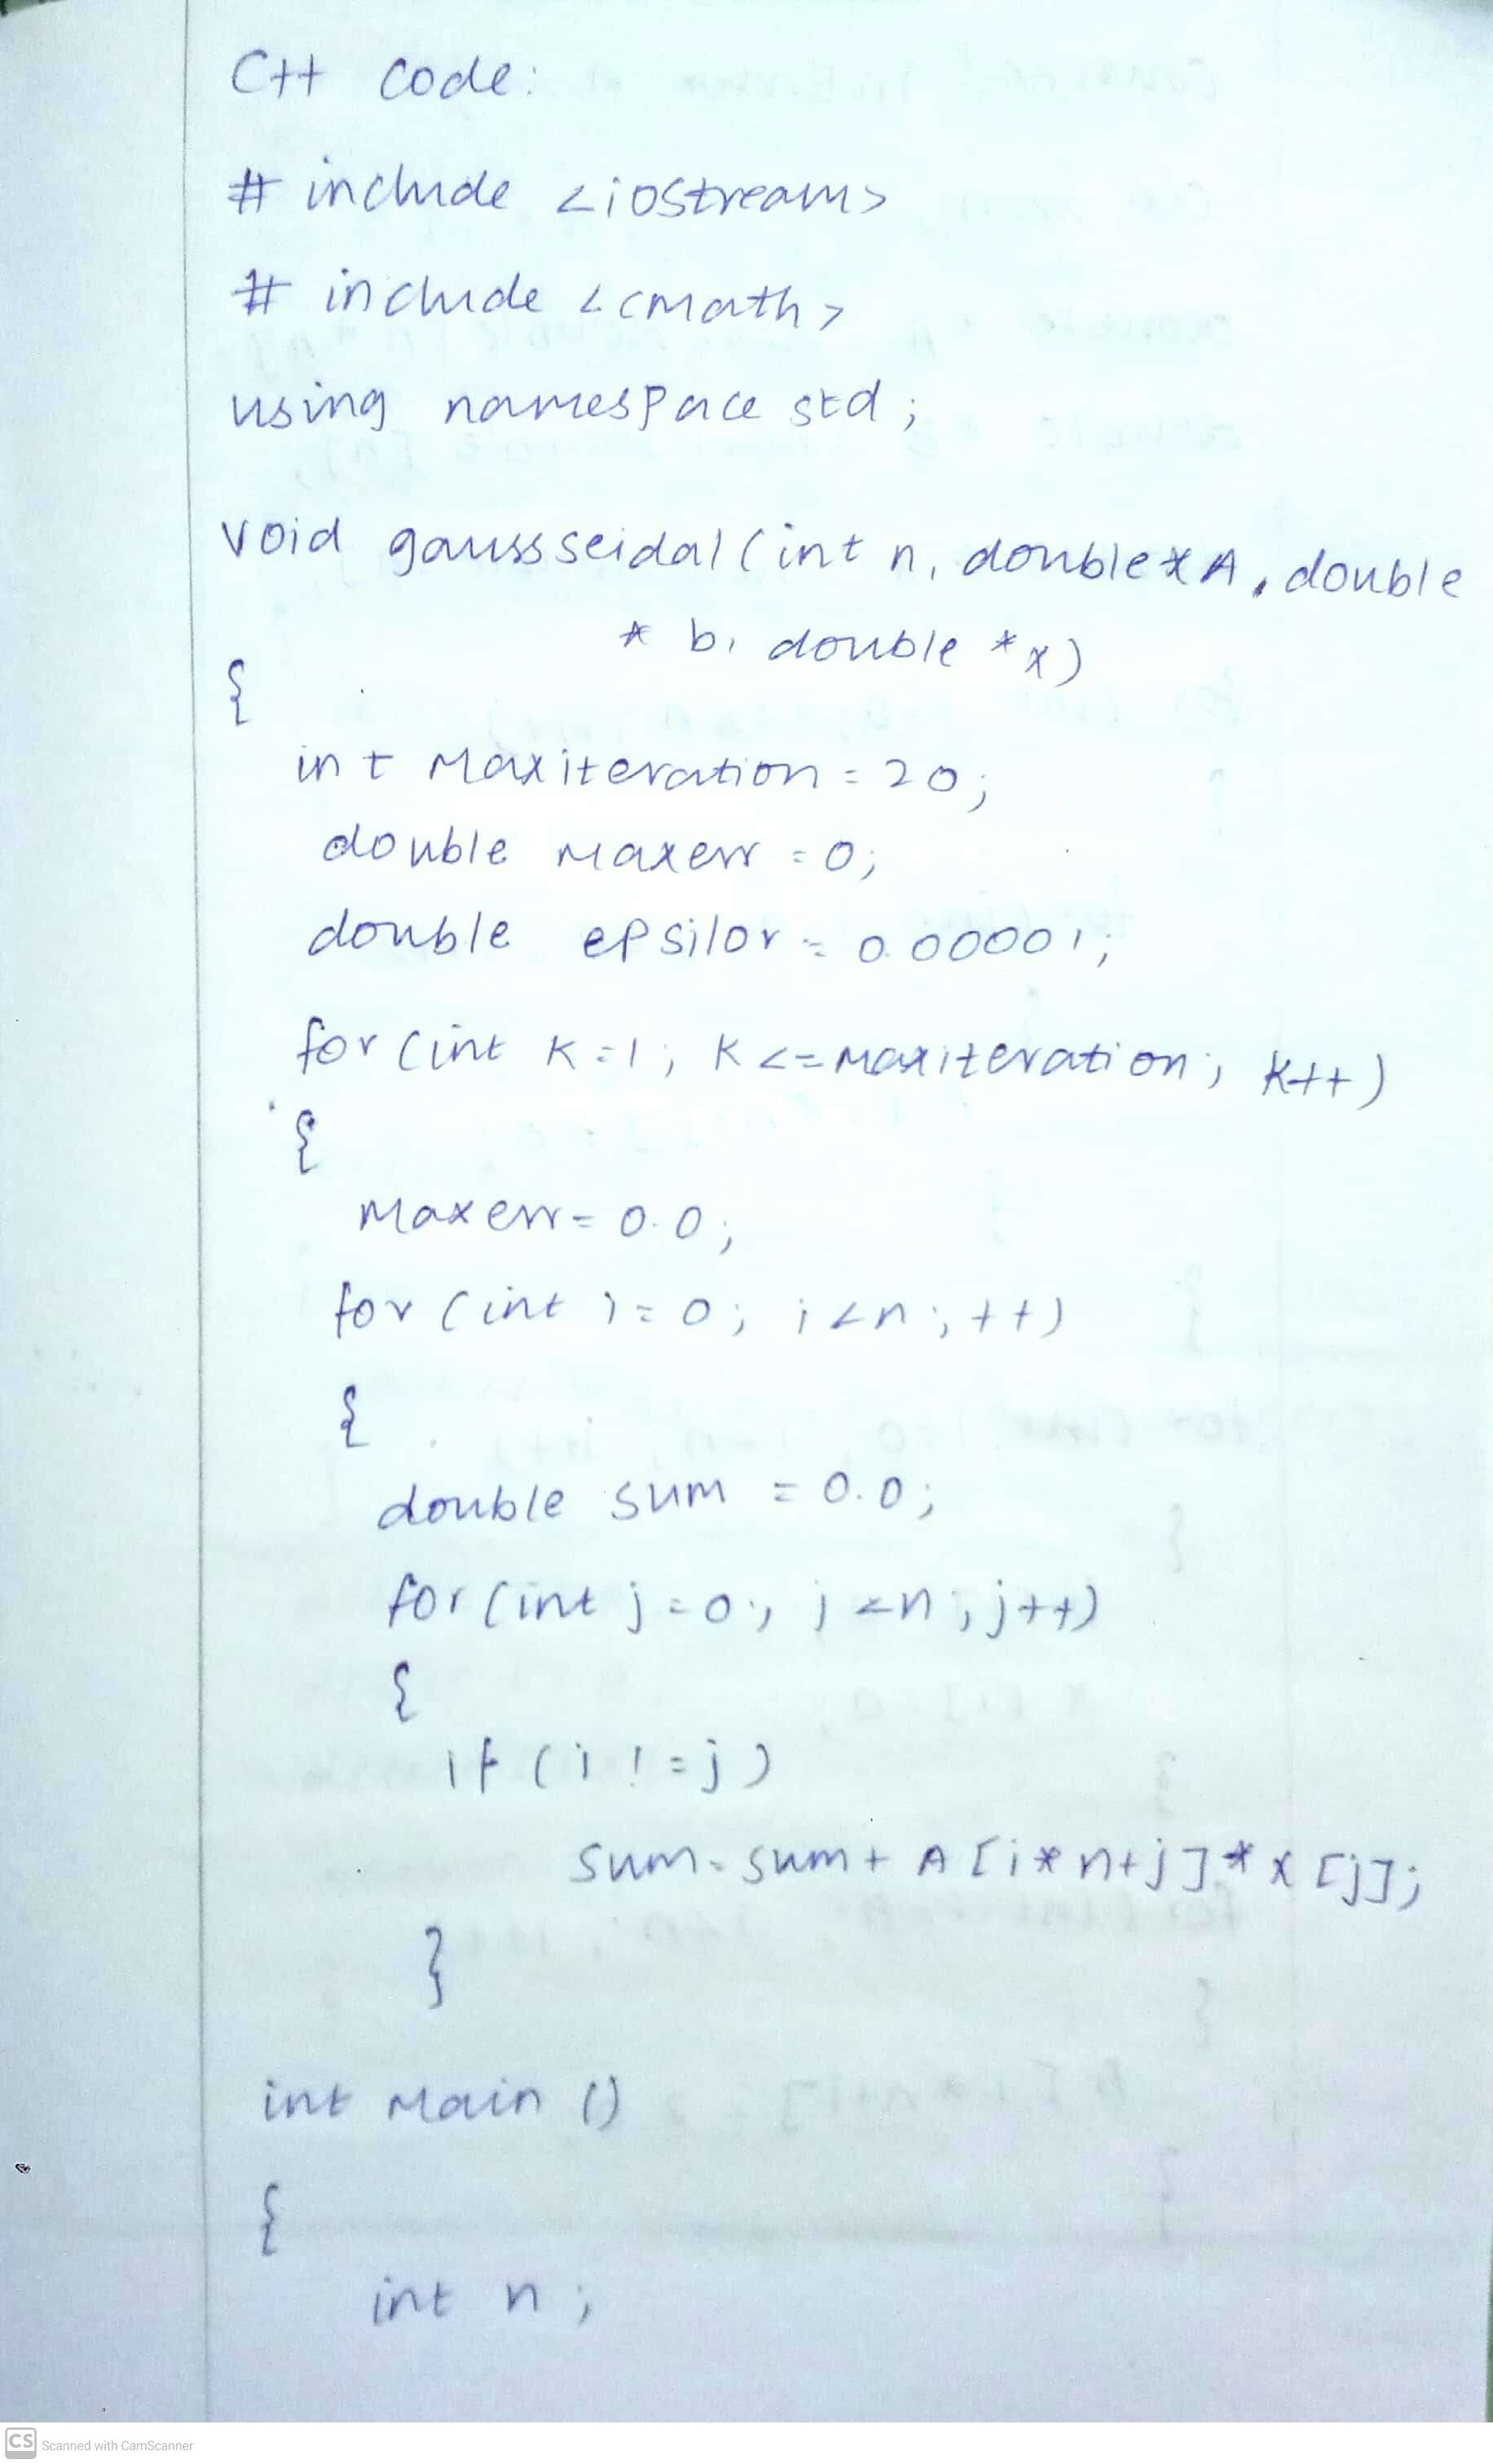 C++ code:
# include <iostream>
# include <cmath>
using namespace std;
void gaussseidal (int n, double*A, double
* b, double *x)
{
int maxiteration = 20;
double maxerr = 0;
double epsilor = 0.00001;
for (int k=1; k<=maxiteration; k++)
{
maxerr = 0.0;
for (int i=0; i<n; ++)
{
double sum = 0.0;
for (int j=0; j<n; j++)
{
if (i!=j)
sum=sum+ A[i*n+j]*x[j];
}
int main ()
{
int n;
CS Scanned with CamScanner